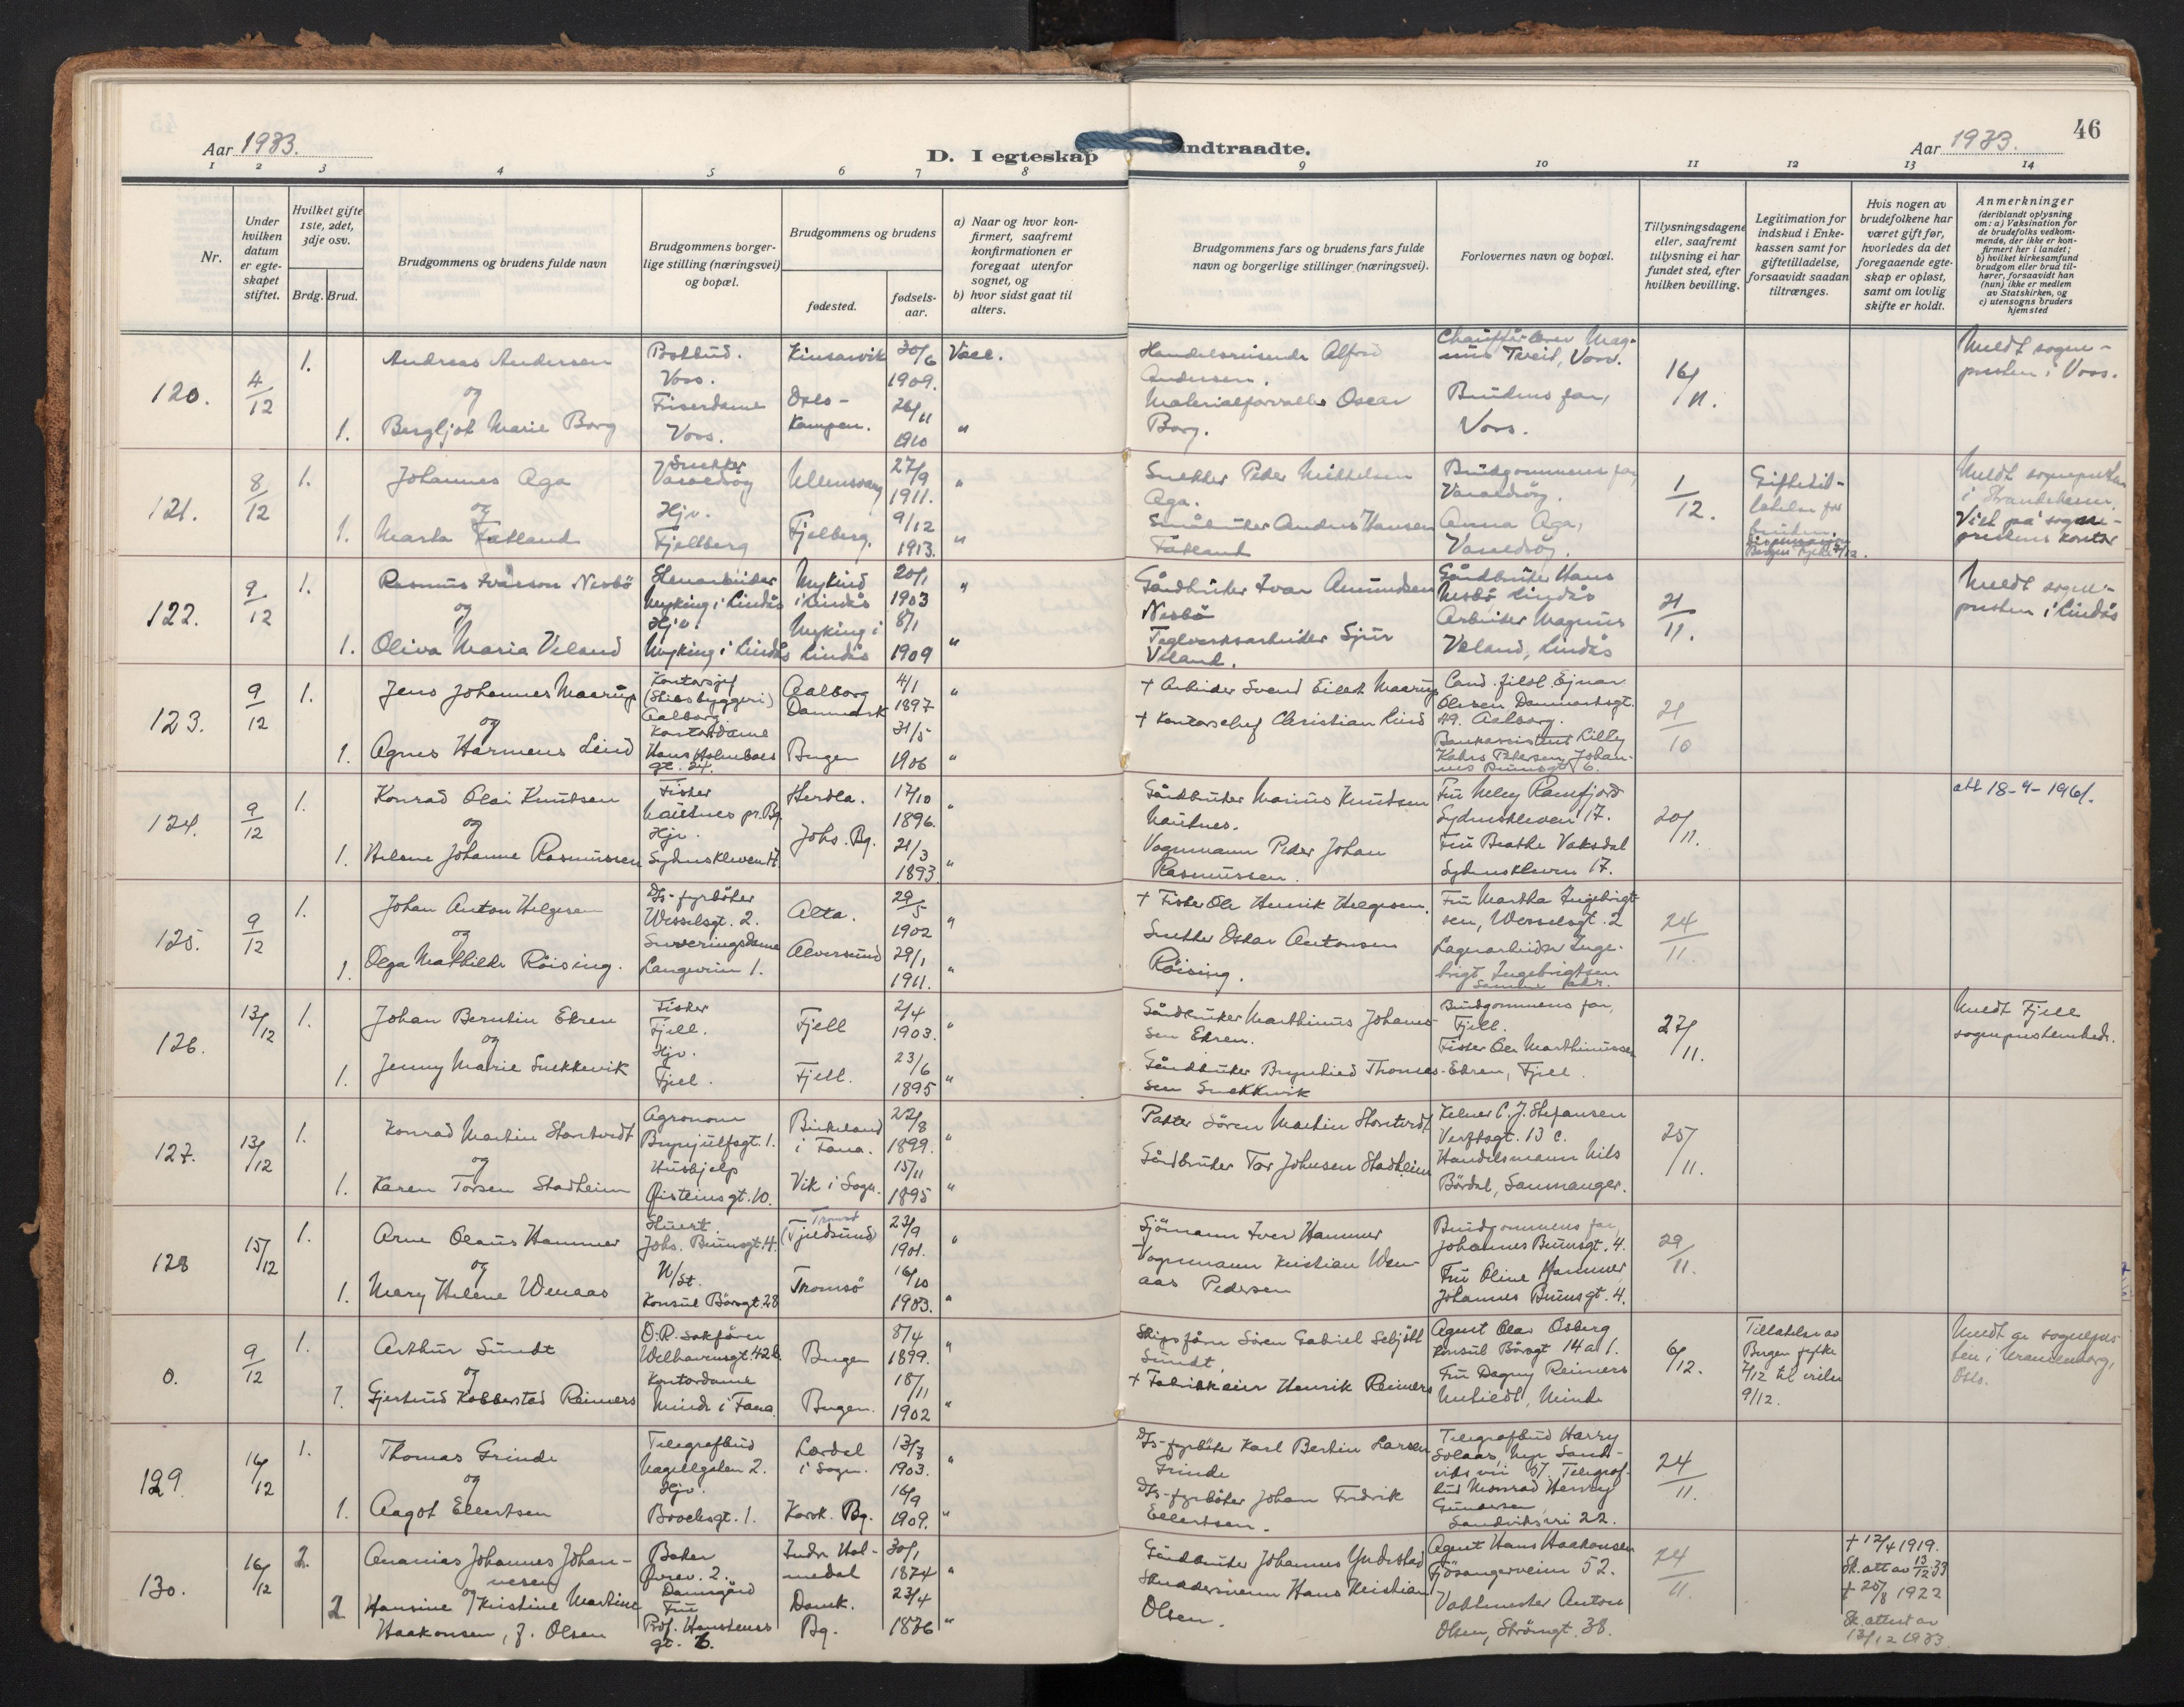 Aar 1933.
D. I egteskap
indtraadte.
Aar 1933.
46
1 2 3 4 5 6 7 8 9 10 11 12 13 14
Nr.
Under hvilken datum er egteskapet stiftet.
Hvilket gifte 1ste, 2det, 3dje osv.
Brdg. Brud.
Brudgommens og brudens fulde navn
Brudgommens borgerlige stilling (næringsvei) og bopæl.
Brudgommens og brudens
fødested.
fødselsaar.
a) Naar og hvor konfirmert, saafremt konfirmationen er foregaat utenfor sognet, og
b) hvor sidst gaat til alters.
Brudgommens fars og brudens fars fulde navn og borgerlige stillinger (næringsvei).
Forlovernes navn og bopæl.
Tillysningsdagene eller, saafremt tillysning ei har fundet sted, efter hvilken bevilling.
Legitimation for indskud i Enkekassen samt for giftetilladelse, forsaavidt saadan tiltrænges.
Hvis nogen av brudefolkene har været gift før, hvorledes da det foregaaende egteskap er opløst, samt om lovlig skifte er holdt.
Anmerkninger
(deriblandt oplysning om: a) Vaksination for de brudefolks vedkommende, der ikke er konfirmert her i landet; b) hvilket kirkesamfund brudgom eller brud tilhører, forsaavidt han (hun) ikke er medlem av Statskirken, og c) utensogns bruders hjemsted
120. 4/12 1. Andreas Andersen
og
1. Bergljot Marie Borg
Postbud. Voss.
Friserdame Voss.
Kinsarvik 30/6 1909. Vacc.
26/11 1910 "
Handelsreisende Alfred Andersen.
Materialforvalter Oscar Borg.
Tveit, Voss.
Brudens far, Voss.
16/11.
Meldt sognepresten i Voss.
121. 8/12 1. Johannes Aga
og
1. Marta Fatland
Snekker
Hjv. Fjellberg
Ullensvang 27/9 1911. "
Fjelberg. 9/12 1913. "
Snekker Peder Mikkelsen Aga.
Småbruker Anders Hansen Fatland
Brudgommens far,
Anna Aga,
1/12.
122. 9/12 1. Rasmus Ivarson Nesbø
og
1. Oliva Maria Veland
Myking i Lindås
Hjv. Myking i Lindås
i Lindås 20/1 1903 "
Myking i Lindås 8/1 1909 "
Gårdbruker Ivar Amundsen Nesbø
Teglverksarbeider Sjur Veland.
Gårdbruker Hans Nesbø, Lindås
Arbeider Magnus Veland, Lindås
21/11.
Meldt sognepresten i Lindås
123. 9/12 1. Jens Johannes Maarup
og
1. Agnes Harmens Lind
Kontorsjef (Skibsbyggeri) Aalborg
Kontordame Hans Holmboes gt. 24.
Aalborg Danmark 4/1 1897 "
Bergen 31/5 1906 "
† Arbeider Svend Eilert Maarup
† Kontorchef Christian Lind
Cand. filol. Ejnar Olesen Danmarksgt. 49. Aalborg.
21/10
124. 9/12 1. Konrad Olai Knutsen
og
1. Helene Johanne Rasmussen
Fisker
Hjv. Sydneskleven 17
Herdla. 17/10 1896. "
Johs. Bg. 21/3 1893 "
Gårdbruker Marius Knutsen
Vognmann Peder Johan Rasmussen.
Fru Nelly Ramfjord Sydneskleven 17.
Fru Beathe Vaksdal Sydneskleven 17.
20/11.
att 18-9-1961.
125. 9/12 1. Johan Anton Helgesen
og
1. Olga Mathilde Røising.
D/s-fyrbøter Wesselsgt. 2.
Serveringsdame 1.
Alta. 29/5 1902 "
Alversund 29/1 1911. "
† Fisker Ole Henrik Helgesen.
Snekker Oskar Antonsen Røising.
Fru Martha Ingebrigtsen, Wesselsgt. 2
Lagerarbeider Ingebrigt Ingebrigtsen
24/11.
126. 13/12 1. Johan Berntin Ekren
og
1. Jenny Marie Snekkevik
Fisker Fjell.
Hjv. Fjell.
Fjell 2/4 1903. "
Fjell. 23/6 1895 "
Gårdbruker Marthinus Johannessen Ekren.
Gårdbruker Brynhild Thomessen Snekkevik
Brudgommens far, Fjell.
Fisker Ole Marthinussen Ekren, Fjell.
27/11.
Meldt Fjell
127. 13/12 1. Konrad Martin Stortvedt
og
1. Karen Torsen Stadheim
Agronom Brynjulfsgt. 1.
Hushjelp Øisteinsgt. 10.
Birkeland i Fana. 22/8 1899. "
Vik i Sogn. 15/11 1895 "
Pakker Søren Martin Stortvedt
Gårdbruker Tor Johnsen Stadheim
Kelner C. J. Stefansen Verftsgt. 13 c.
Handelsmann Nils Børdal, Samnanger.
25/11.
128 15/12 1. Arne Olaus Hammer
og
1. Mary Helene Wenaas
Stuert. Johs. Bruunsgt. 4.
N/St. Konsul Børsgt. 28
Tromsø (Fjeldsund) 23/9 1901. "
Tromsø 16/10 1903. "
Sjømann Iver Hammer
Vognmann Kristian Wenaas Pedersen
Brudgommens far, Johannes Bruunsgt. 4.
Fru Oline Hammer Johannes Bruunsgt. 4.
29/11.
0. 9/12 1. Arthur Sundt
og
1. Gjertrud Kobberstad Reimers
O.R. sakfører Welhavensgt. 42 b.
Kontordame Minde i Fana
Bergen 8/4 1899. "
Bergen. 18/11 1902 "
Skipsfører Søren Gabriel Seljøtt Sundt.
† Fabrikkeier Henrik Reimers
Agent Olav Osberg Konsul Børsgt 14 a 1.
Fru Dagny Reimers Minde
6/12.
Tillatelse av Bergen fylke 7/12 til vielse 9/12.
Meldt sognepresten i Uranienborg, Oslo.
129. 16/12 1. Thomas Grinde
og
1. Aagot Ellertsen
Telegrafbud Nagellgaten 2.
Hjv. Brochsgt. 1.
Lærdal i Sogn. 13/7 1903. "
Korsk. Bg. 16/9 1909. "
D/s-fyrbøter Karl Bertin Larsen Grinde
D/s-fyrbøter Johan Fredrik Ellertsen.
Telegrafbud Harry Solaas, Nye Sandviksvei 57. Telegrafbud Monrad Henry Gundersen Sandviksvei 22.
24/11.
130. 16/12 2. Ananias Johannes Johannesen
og
2 Hansine Kristine Martine Haakonsen, f. Olsen
Baker Damsgård
Fru Prof. Hansteens gt. 6.
Indre Holmedal 30/1 1874 "
Domk. Bg. 23/4 1876 "
Gårdbruker Johannes Yndestad
Skreddersvenn Hans Kristian Olsen.
Agent Hans Haakonsen Fjøsangerveien 52.
Vaktmester Anton Olsen, Strømgt. 38.
24/11.
† 12/4 1919. Sk. att av 13/12 33
† 25/8 1922 Sk. attest av 13/12 1933.